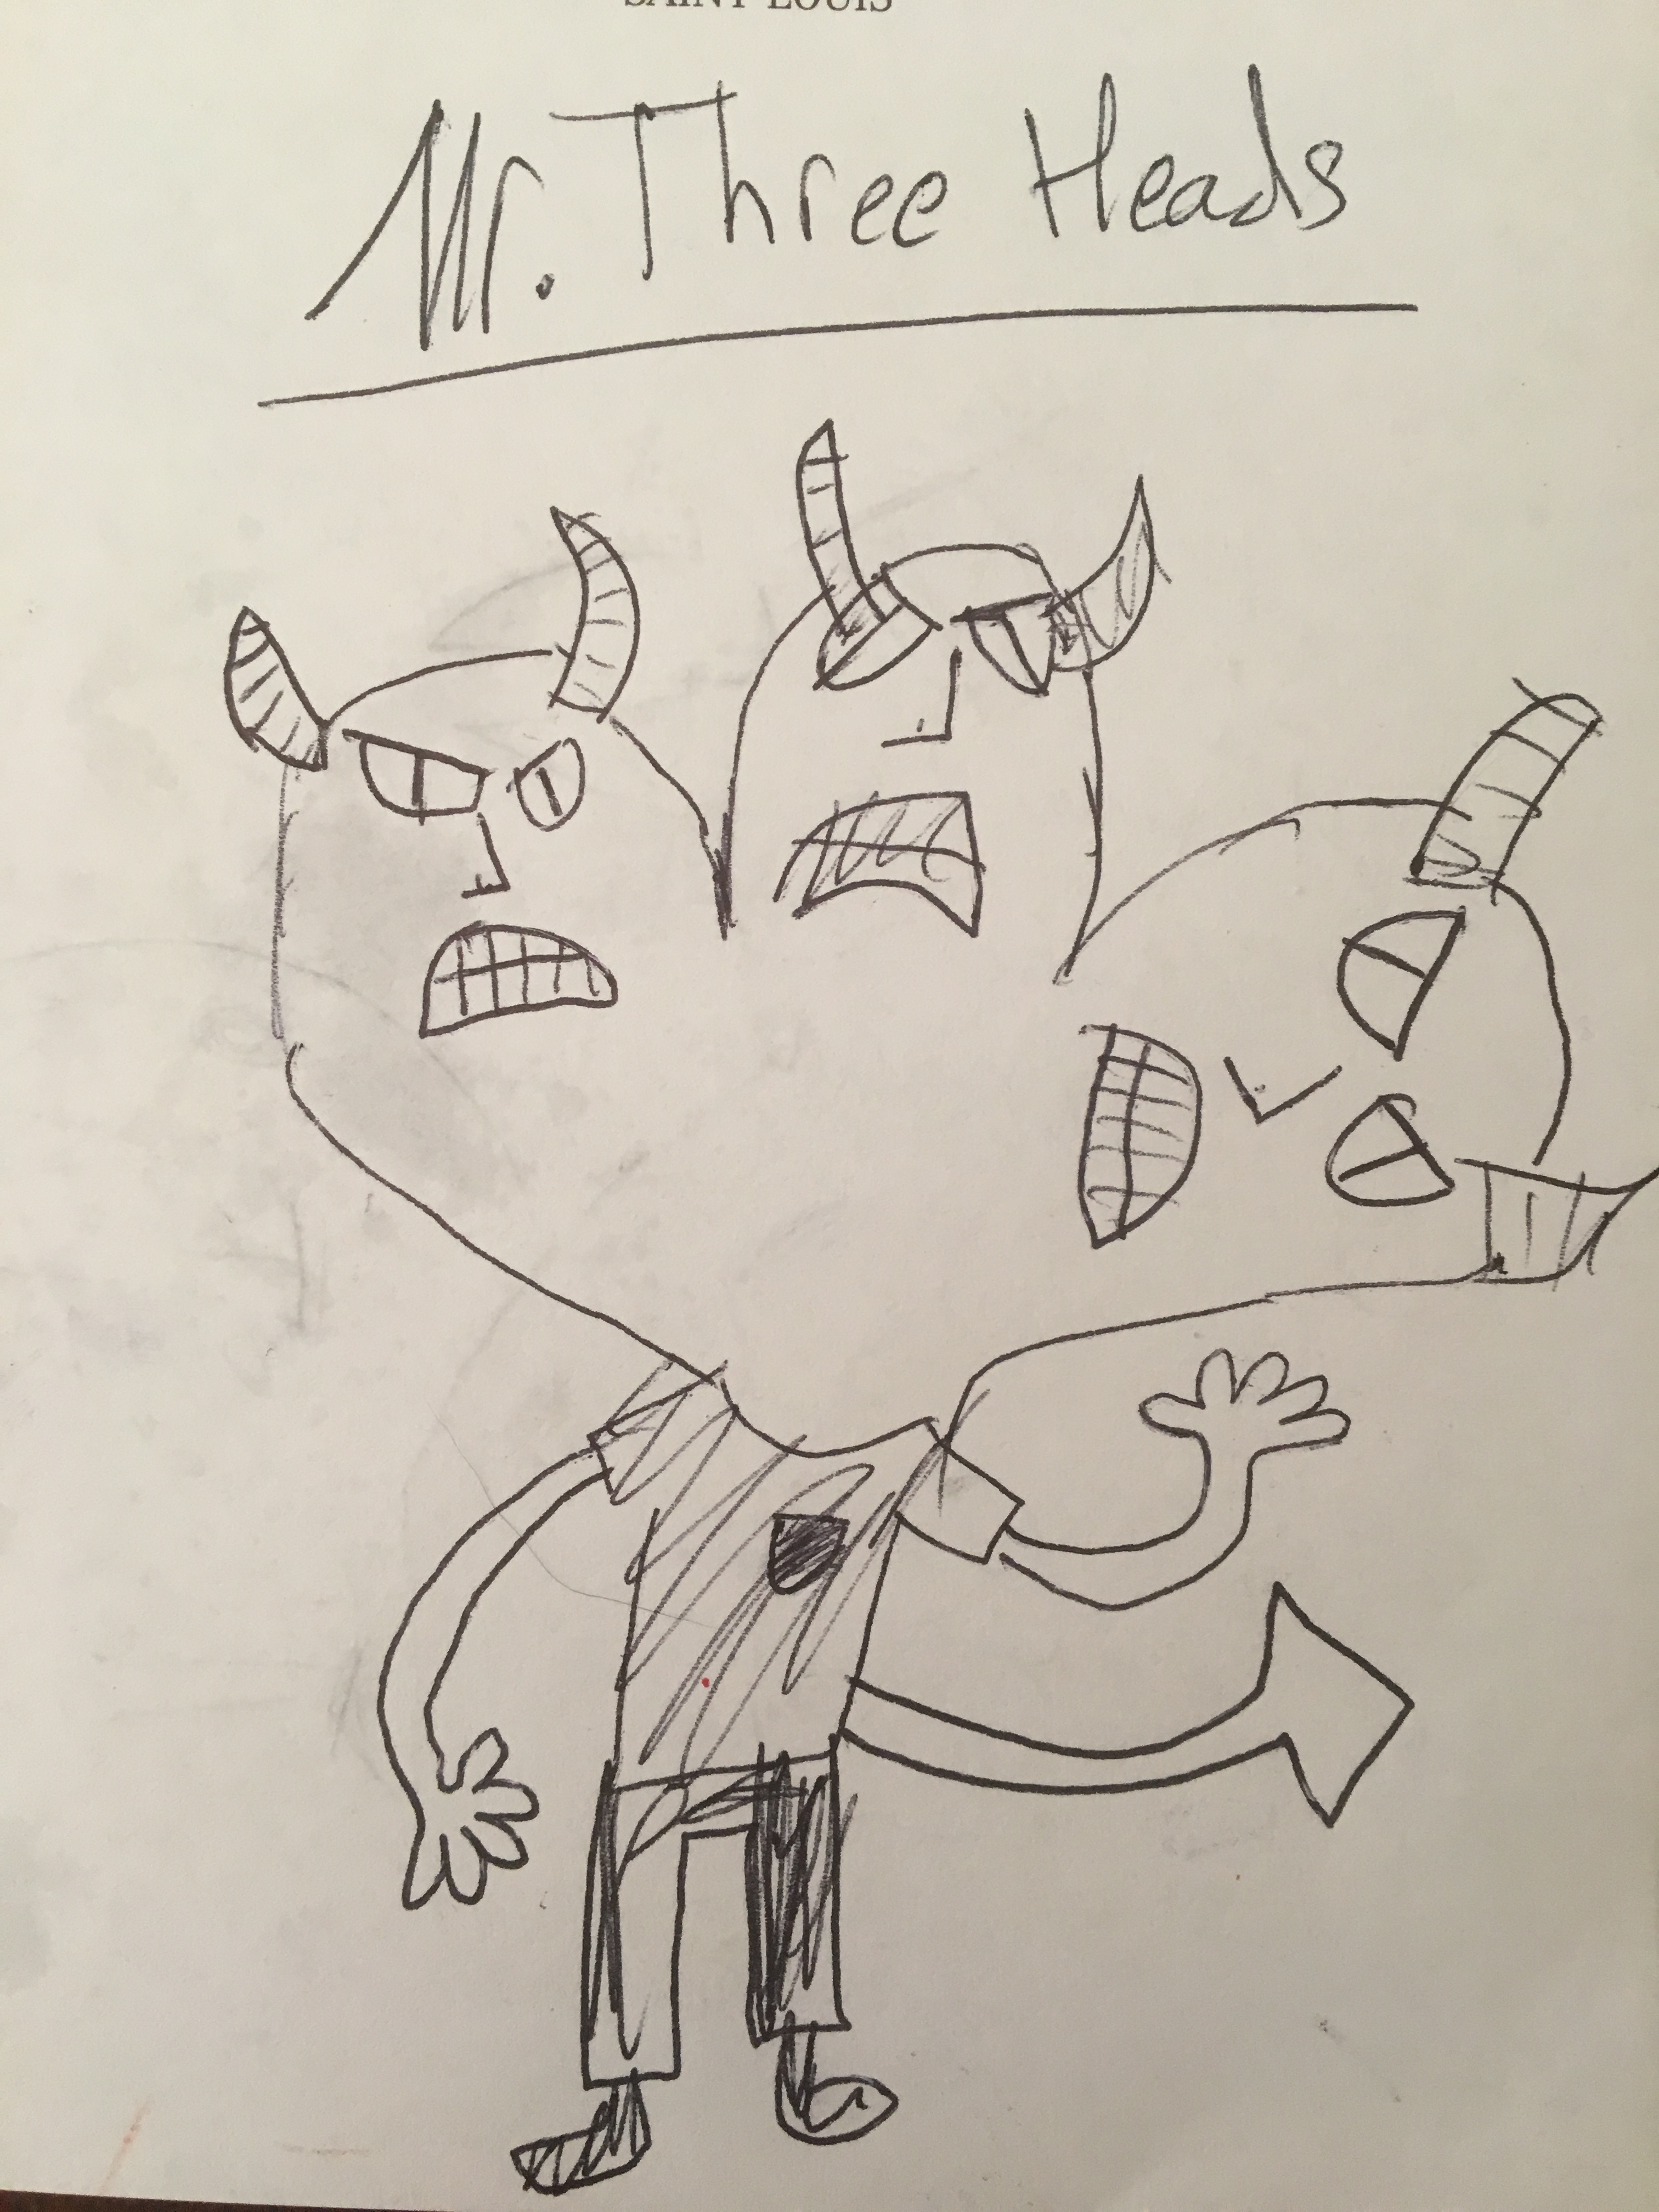 SAINT LOUIS
Mr. Three Heads